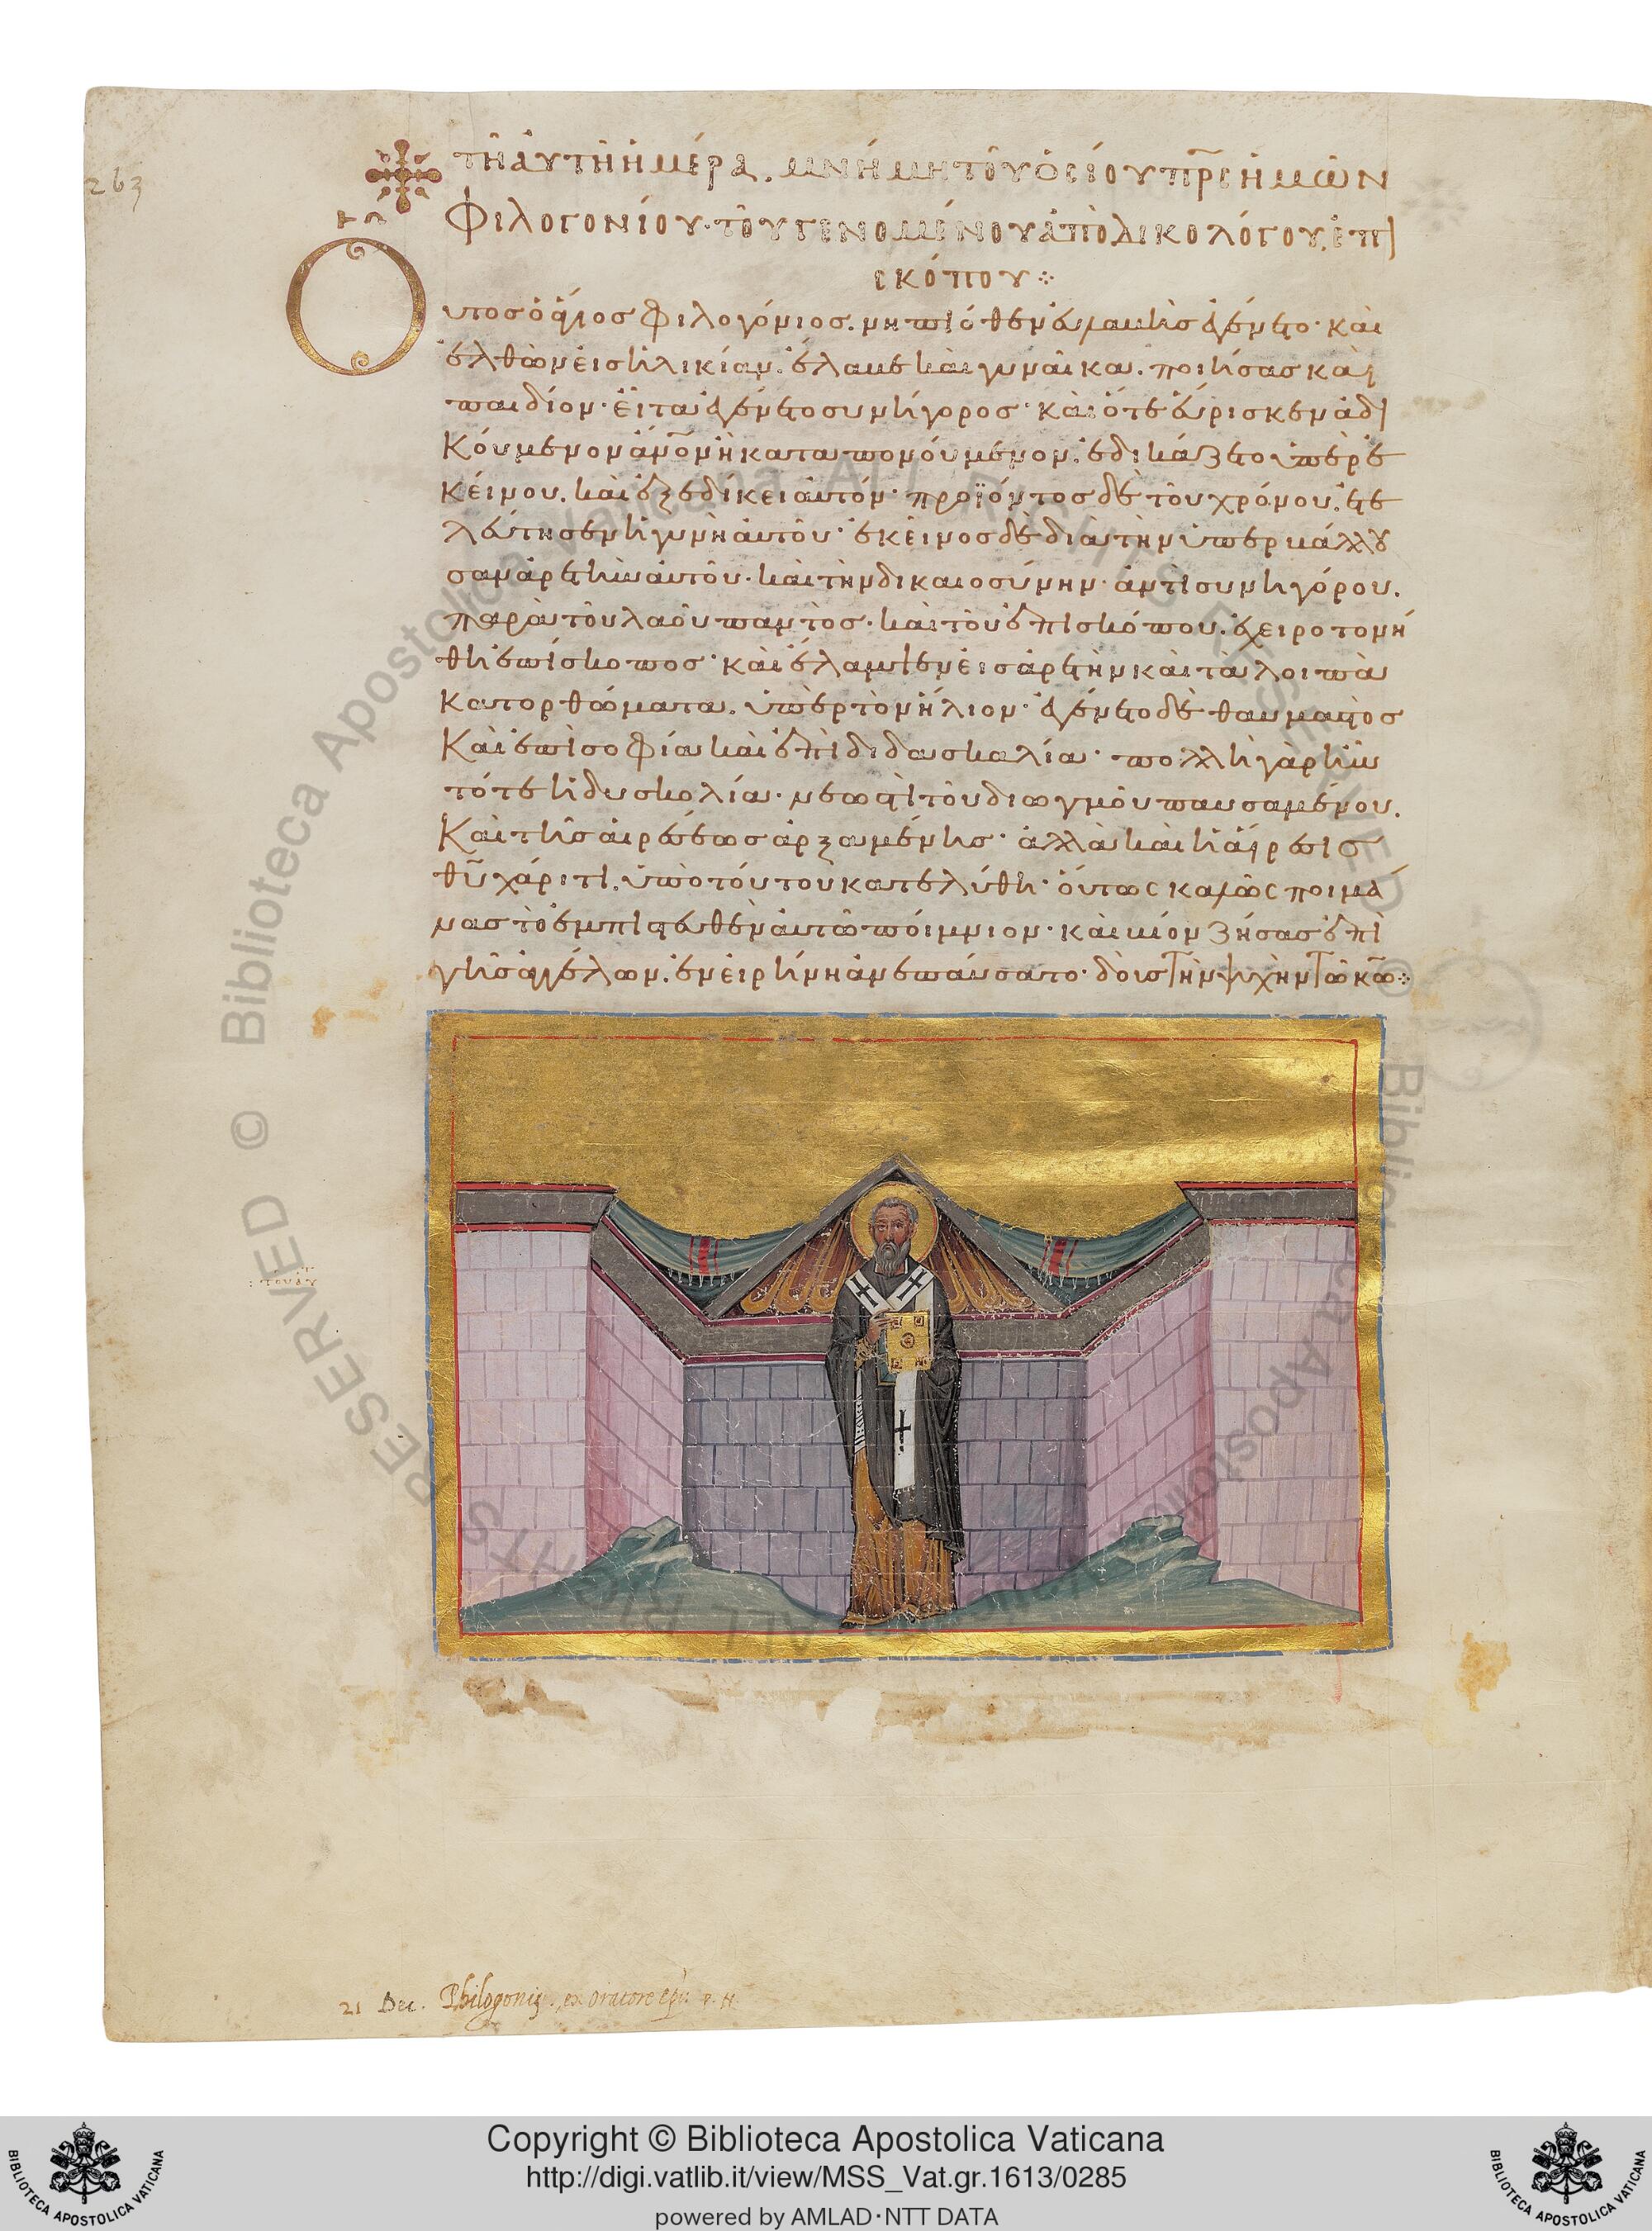 263
τῆ αὐτῆ ἡμέρα. μνήμη τοῦ ὁσίου πρς ἡμῶν
Φιλογονίου· τοῦ γενομένου ἀπὸ δικολόγου, ἐπι
σκόπου
Οὗτος ὁ ἅγιος Φιλογόνιος. νηπιόθεν
ἐγένετο· καὶ
ἐλθὼν εἰς ἡλικίαν. ἔλαβε καὶ γυναῖκα. ποιήσας καὶ
παιδίον· εἶτα ἐγένετο συνήγορος· καὶ ὅτε εὕρισκεν ἀδι
κούμενον ἄνον ἢ καταπονούμενον. ἐδικάζετο ὑπὲρ ἐ
κείνου. καὶ ἐξεδίκει αὐτόν· προϊόντος δὲ τοῦ χρόνου. ἐτε
λεύτησεν ἡ γυνὴ αὐτοῦ· ἐκεῖνος δὲ διὰ τὴν ὑπερβάλλου
σαν ἀρετὴν αὐτοῦ. καὶ τὴν δικαιοσύνην· ἀντὶ συνηγόρου.
παρὰ τοῦ λαοῦ παντὸς. καὶ τοῦ ἐπισκόπου. ἐχειροτονή
θη ἐπίσκοπος· καὶ ἔλαμψεν εἰς ἀρετὴν καὶ τὰ λοιπὰ
κατορθώματα. ὑπὲρ τὸν ἥλιον· ἐγένετο δὲ θαυμαστὸς
καὶ ἐπὶ σοφία καὶ ἐπὶ διδασκαλία· πολλὴ γὰρ ἦν
τότε ἡ δυσκολία. νεωστὶ τοῦ διωγμοῦ παυσαμένου.
καὶ τῆς αἱρέσεως ἀρξαμένης· ἀλλὰ καὶ ἡ αἵρεσις
θυ χάριτι. ὑπὸ τούτου κατελύθη· οὕτως καλῶς ποιμά
νας τὸ ἐμπιστευθὲν αὐτῶ ποίμνιον· καὶ βίον ζήσας ἐπὶ
γῆς ἀγγέλων. ἐν εἰρήνη ἀνεπαύσατο. δοὺς τὴν ψυχὴν τῶ κω
21 Dec. Philogonij. ex oratore epi.
Copyright © Biblioteca Apostolica Vaticana
http://digi.vatlib.it/view/MSS_Vat.gr.1613/0285
powered by AMLAD·NTT DATA
BIBLIOTECA APOSTOLICA VATICANA
BIBLIOTECA APOSTOLICA VATICANA
© Biblioteca Apostolica Vaticana ALL RIGHTS RESERVED © Biblioteca Apostolica Vaticana ALL RIGHTS RESERVED